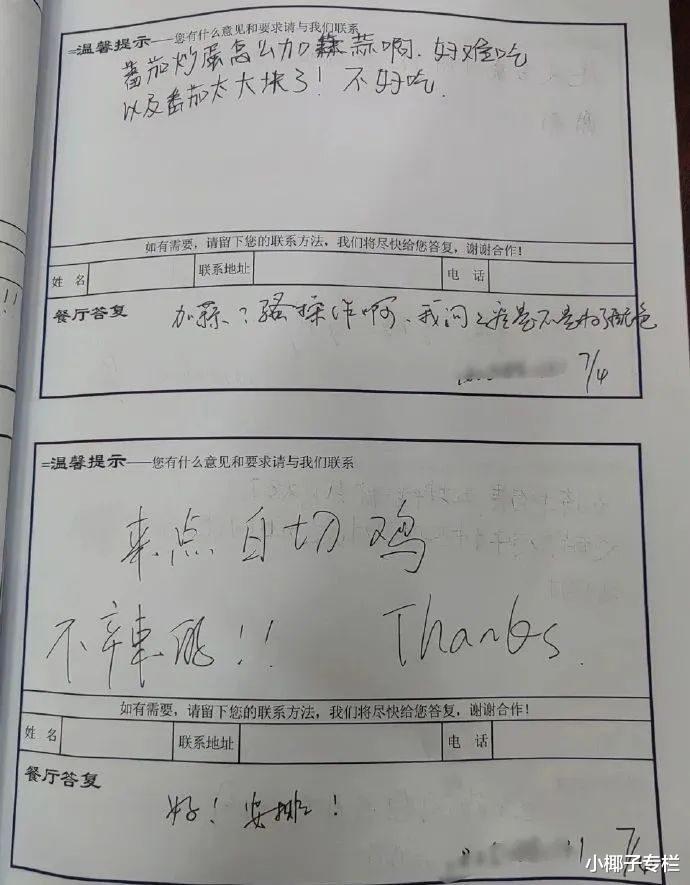 =温馨提示——您有什么意见和要求请与我们联系
番茄炒蛋怎么加蒜啊.好难吃
以及番茄太大块了！不好吃.
如有需要，请留下您的联系方法，我们将尽快给您答复，谢谢合作！
姓 名 联系地址 电 话
餐厅答复 加蒜？骚操作啊、我问之后是不是为了配色
7/4
=温馨提示——您有什么意见和要求请与我们联系
来点白切鸡
不辣哦！！ Thanks.
如有需要，请留下您的联系方法，我们将尽快给您答复，谢谢合作！
姓 名 联系地址 电 话
餐厅答复
好！安排！
小椰子专栏